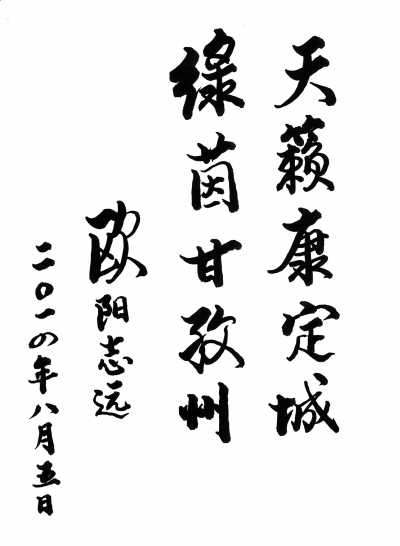 天籁康定城
绿茵甘孜州
欧阳志远
二〇一四年八月五日